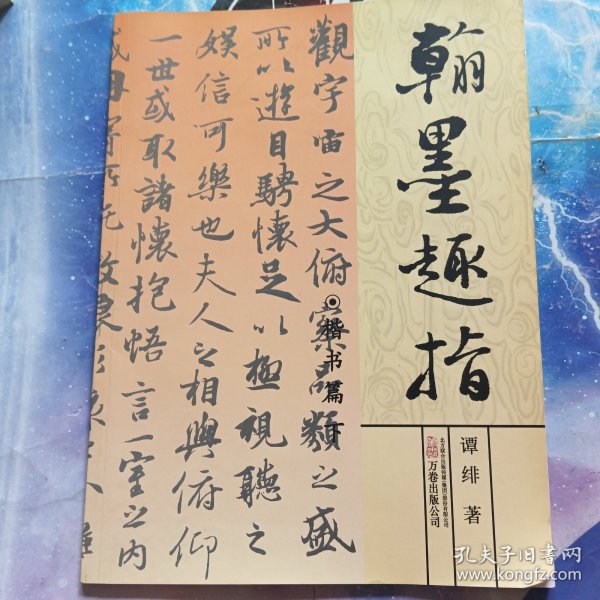 翰墨趣指
谭绯 著
北方联合出版传媒(集团)股份有限公司
万卷出版公司
楷书篇 下
觀宇宙之大俯察品類之盛
所以遊目騁懷足以極視聽之
娱信可樂也夫人之相與俯仰
一世或取諸懷抱悟言一室之内
孔夫子旧书网
www.kongfz.com